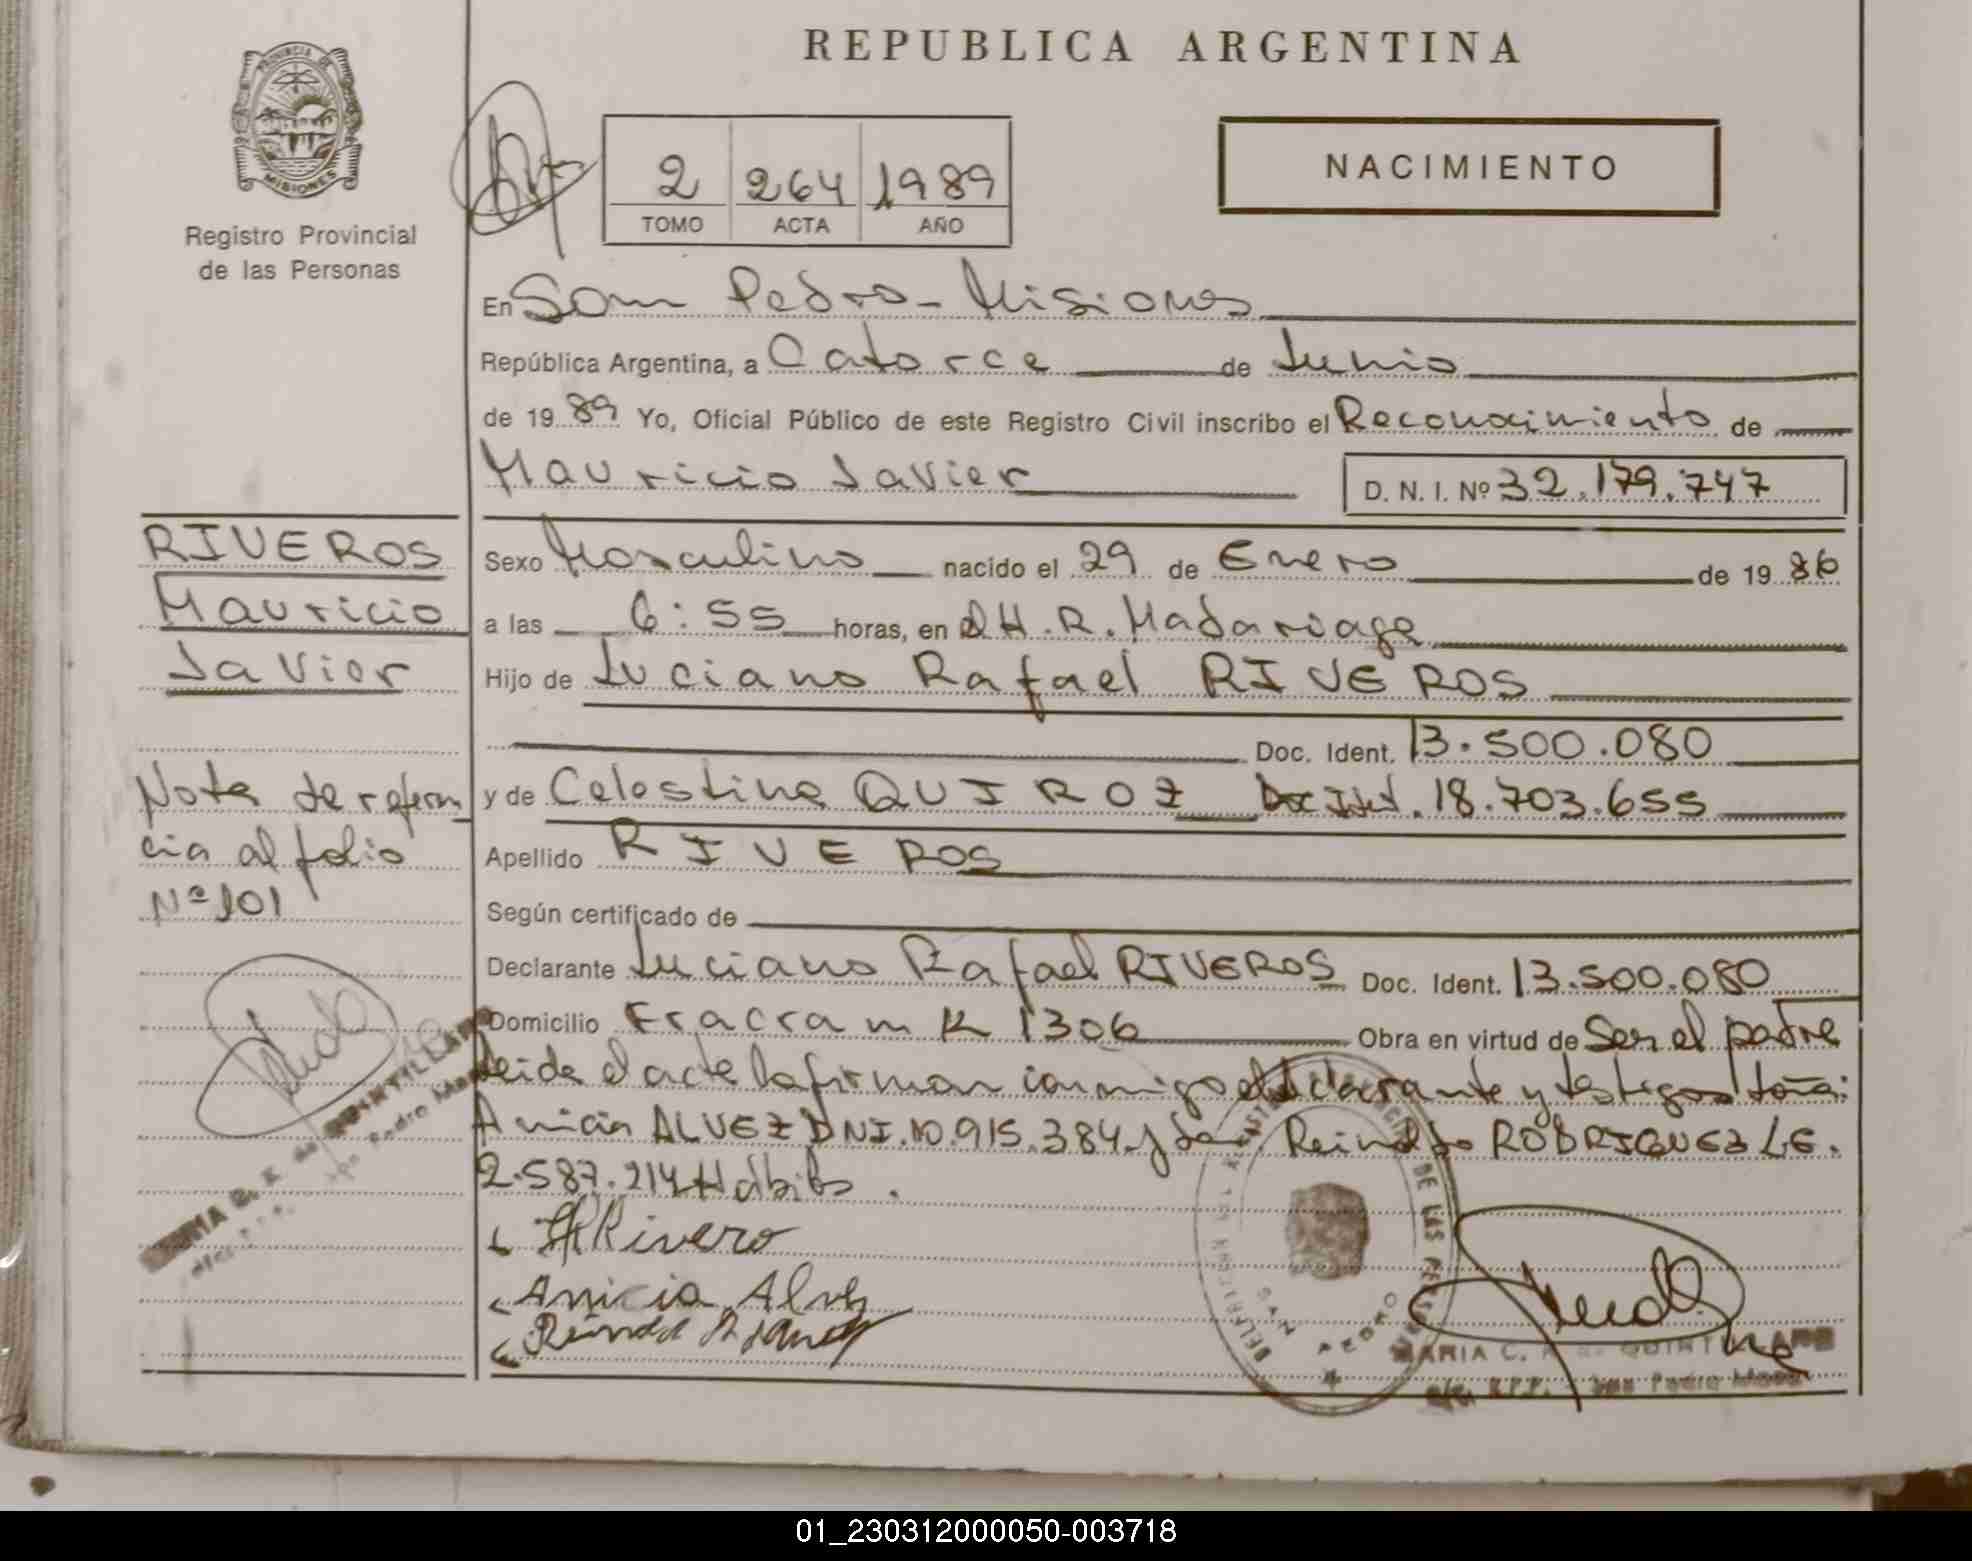 REPUBLICA ARGENTINA
PROVINCIA DE
MISIONES
Registro Provincial
de las Personas
2 264 1989
TOMO ACTA AÑO
NACIMIENTO
En San Pedro - Misiones
República Argentina, a Catorce de Junio
de 1989 Yo, Oficial Público de este Registro Civil inscribo el Reconocimiento de
Mauricio Javier D. N. I. Nº 32.179.747
RIVEROS
Mauricio
Javier
Sexo Masculino nacido el 29 de Enero de 1986
a las 6:55 horas, en el H.R. Madariaga
Hijo de Luciano Rafael RIVEROS
Doc. Ident. 13.500.080
y de Celestina QUIROZ Doc Ident. 18.703.655
Apellido RIVEROS
Según certificado de
Nota de referen
cia al folio
Nº 101
Declarante Luciano Rafael RIVEROS Doc. Ident. 13.500.080
Domicilio Fracram K 1306 Obra en virtud de Ser el padre
Leida el acta la firman conmigo el declarante y testigos
Anicia ALVEZ DNI.10.915.384 y Reinaldo RODRIGUEZ LE.
2.587.214 Hábiles.
Rivero
Anicia Alvez
MARIA C. QUINTILLAN
San Pedro
DE LAS PERSONAS
SAN PEDRO
01_230312000050-003718